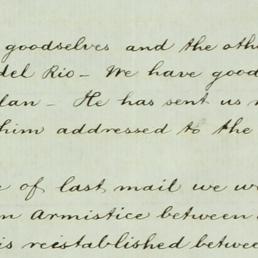 goodselves and the oth
del Rio - We have good
lan - He has sent us
him addressed to the
of last mail we w
Armistice between
is reistablished betwee